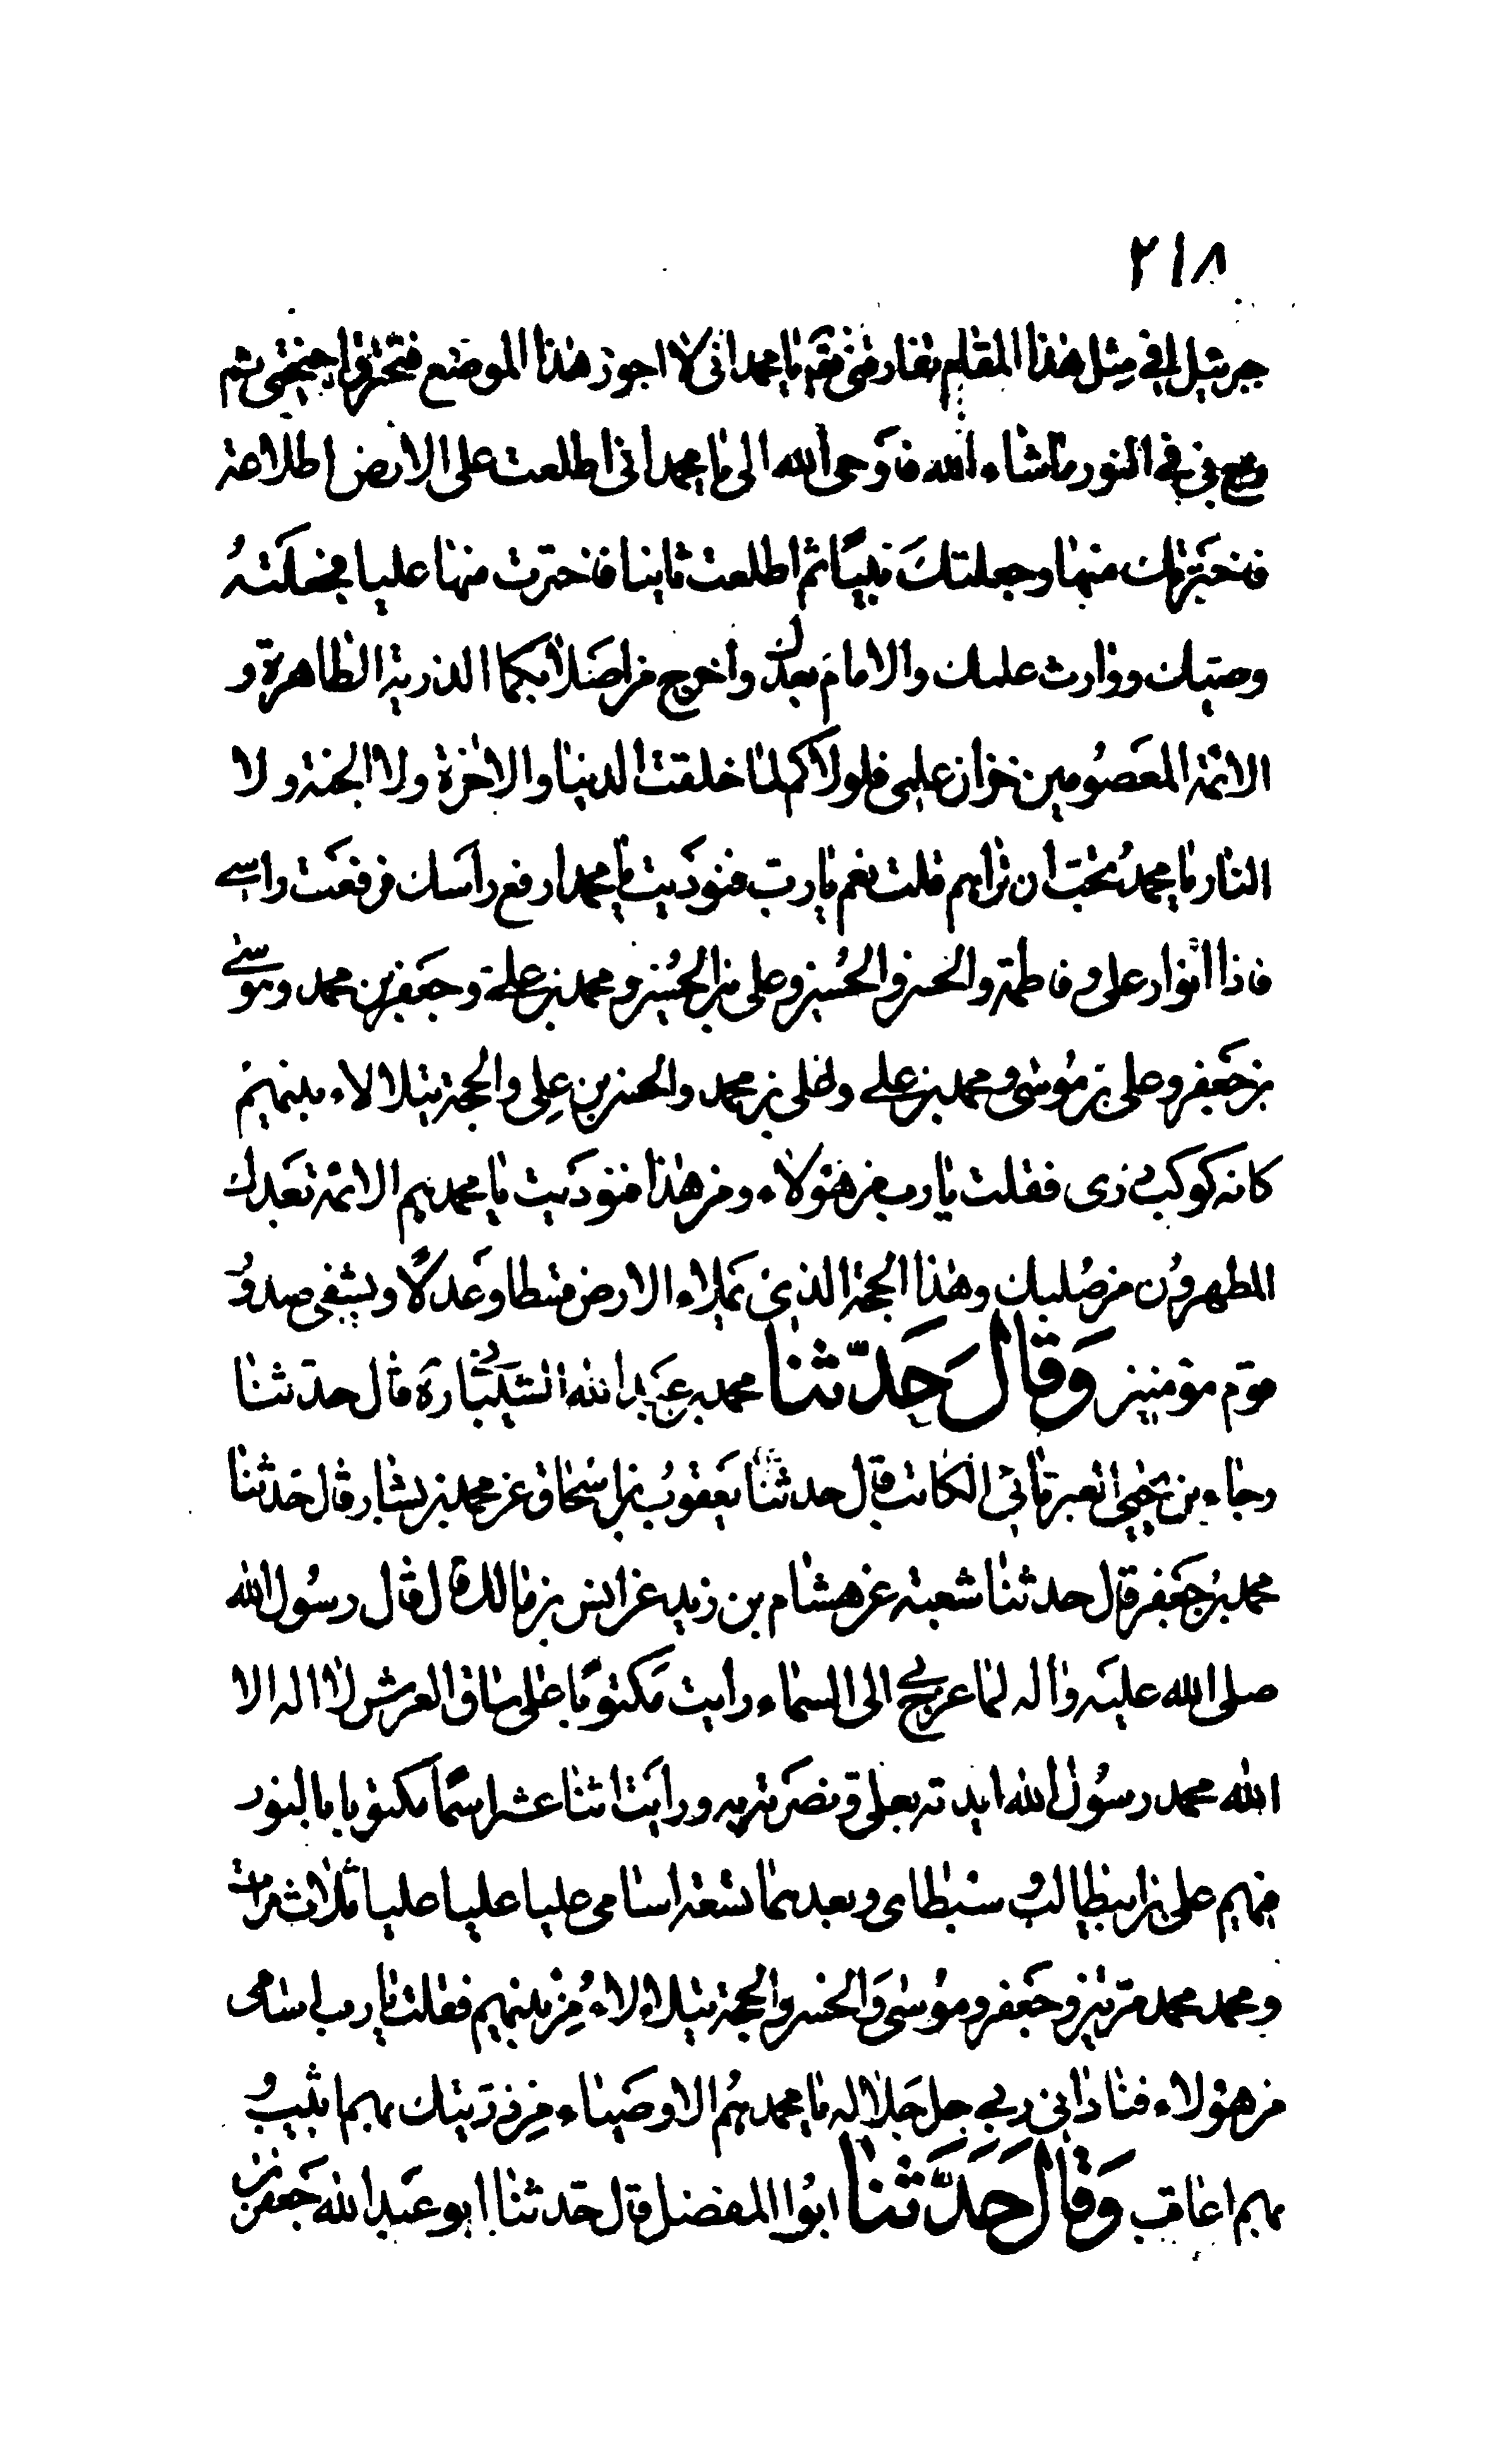 ٢١٨
جبرئيل افي مثل هذا المقام تفارقني فقال يا محمد اني لا اجوز هذا الموضع فتحترق اجنحتي ثم
زج بي في النور ماشاء الله فاوحى الله الى يا محمد اني اطلعت على الارض اطلاعة
فاخترتك منها وجعلتك نبيا ثم اطلعت ثانيا فاخترت منها عليا فجعلته
وصيك ووارث علمك والامام بعدك واخرج من اصلابكما الذرية الطاهرة و
الائمة المعصومين خزان علمي فلولاكم لما خلقت الدنيا والاخرة ولا الجنة ولا
النار يا محمد تحب ان تراهم قلت نعم يا رب فنوديت يا محمد ارفع راسك فرفعت راسي
فاذا انوار علي و فاطمة والحسن والحسين وعلي بن الحسين و محمد بن علي و جعفر بن محمد وموسى
بن جعفر و علي بن موسى و محمد بن علي و علي بن محمد والحسن بن علي والحجة يتلالاء بينهم
كانه كوكب دري فقلت يا رب من هؤلاء ومن هذا فنوديت يا محمد هم الائمة بعدك
المطهرون من صلبك وهذا الحجة الذي يملاء الارض قسطا وعدلا ويشفى صدور
قوم مؤمنين وقال حدثنا محمد بن عبد الله الشيباني ره قال حدثنا
رجاء بن يحيى العبرتائي الكاتب قال حدثنا يعقوب بن اسحاق عن محمد بن بشار قال حدثنا
محمد بن جعفر قال حدثنا شعبة عن هشام بن زيد عن انس بن مالك قال قال رسول الله
صلى الله عليه واله لما عرج بي الى السماء رايت مكتوبا على ساق العرش لا اله الا
الله محمد رسول الله ايدته بعلي و نصرته به ورايت اثنا عشر اسما مكتوبا بالنور
فيهم علي بن ابيطالب و سبطاي وبعدهما تسعة اسامي عليا عليا عليا ثلاث مرات
و محمد محمد مرتين و جعفر و موسى والحسن والحجة يتلاءلاء من بينهم فقلت يا رب اسامي
من هؤلاء فناداني ربي جل جلاله يا محمد هم الاوصياء من ذريتك بهم اثيب و
بهم اعاقب وقال حدثنا ابوا المفضل قال حدثنا ابو عبد الله جعفر بن